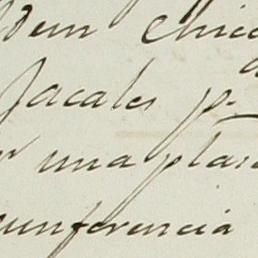 Idem chico
Jacales p.
r una plaz
cunferencia